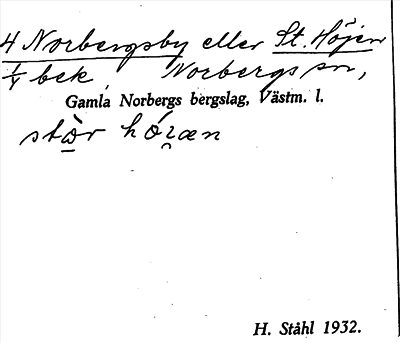 4 Norbergsby eller St. Höjen
1/4 bek Norbergs sn,
Gamla Norbergs bergslag, Västm. l.
stòr hó̜ʒæn
H. Ståhl 1932.